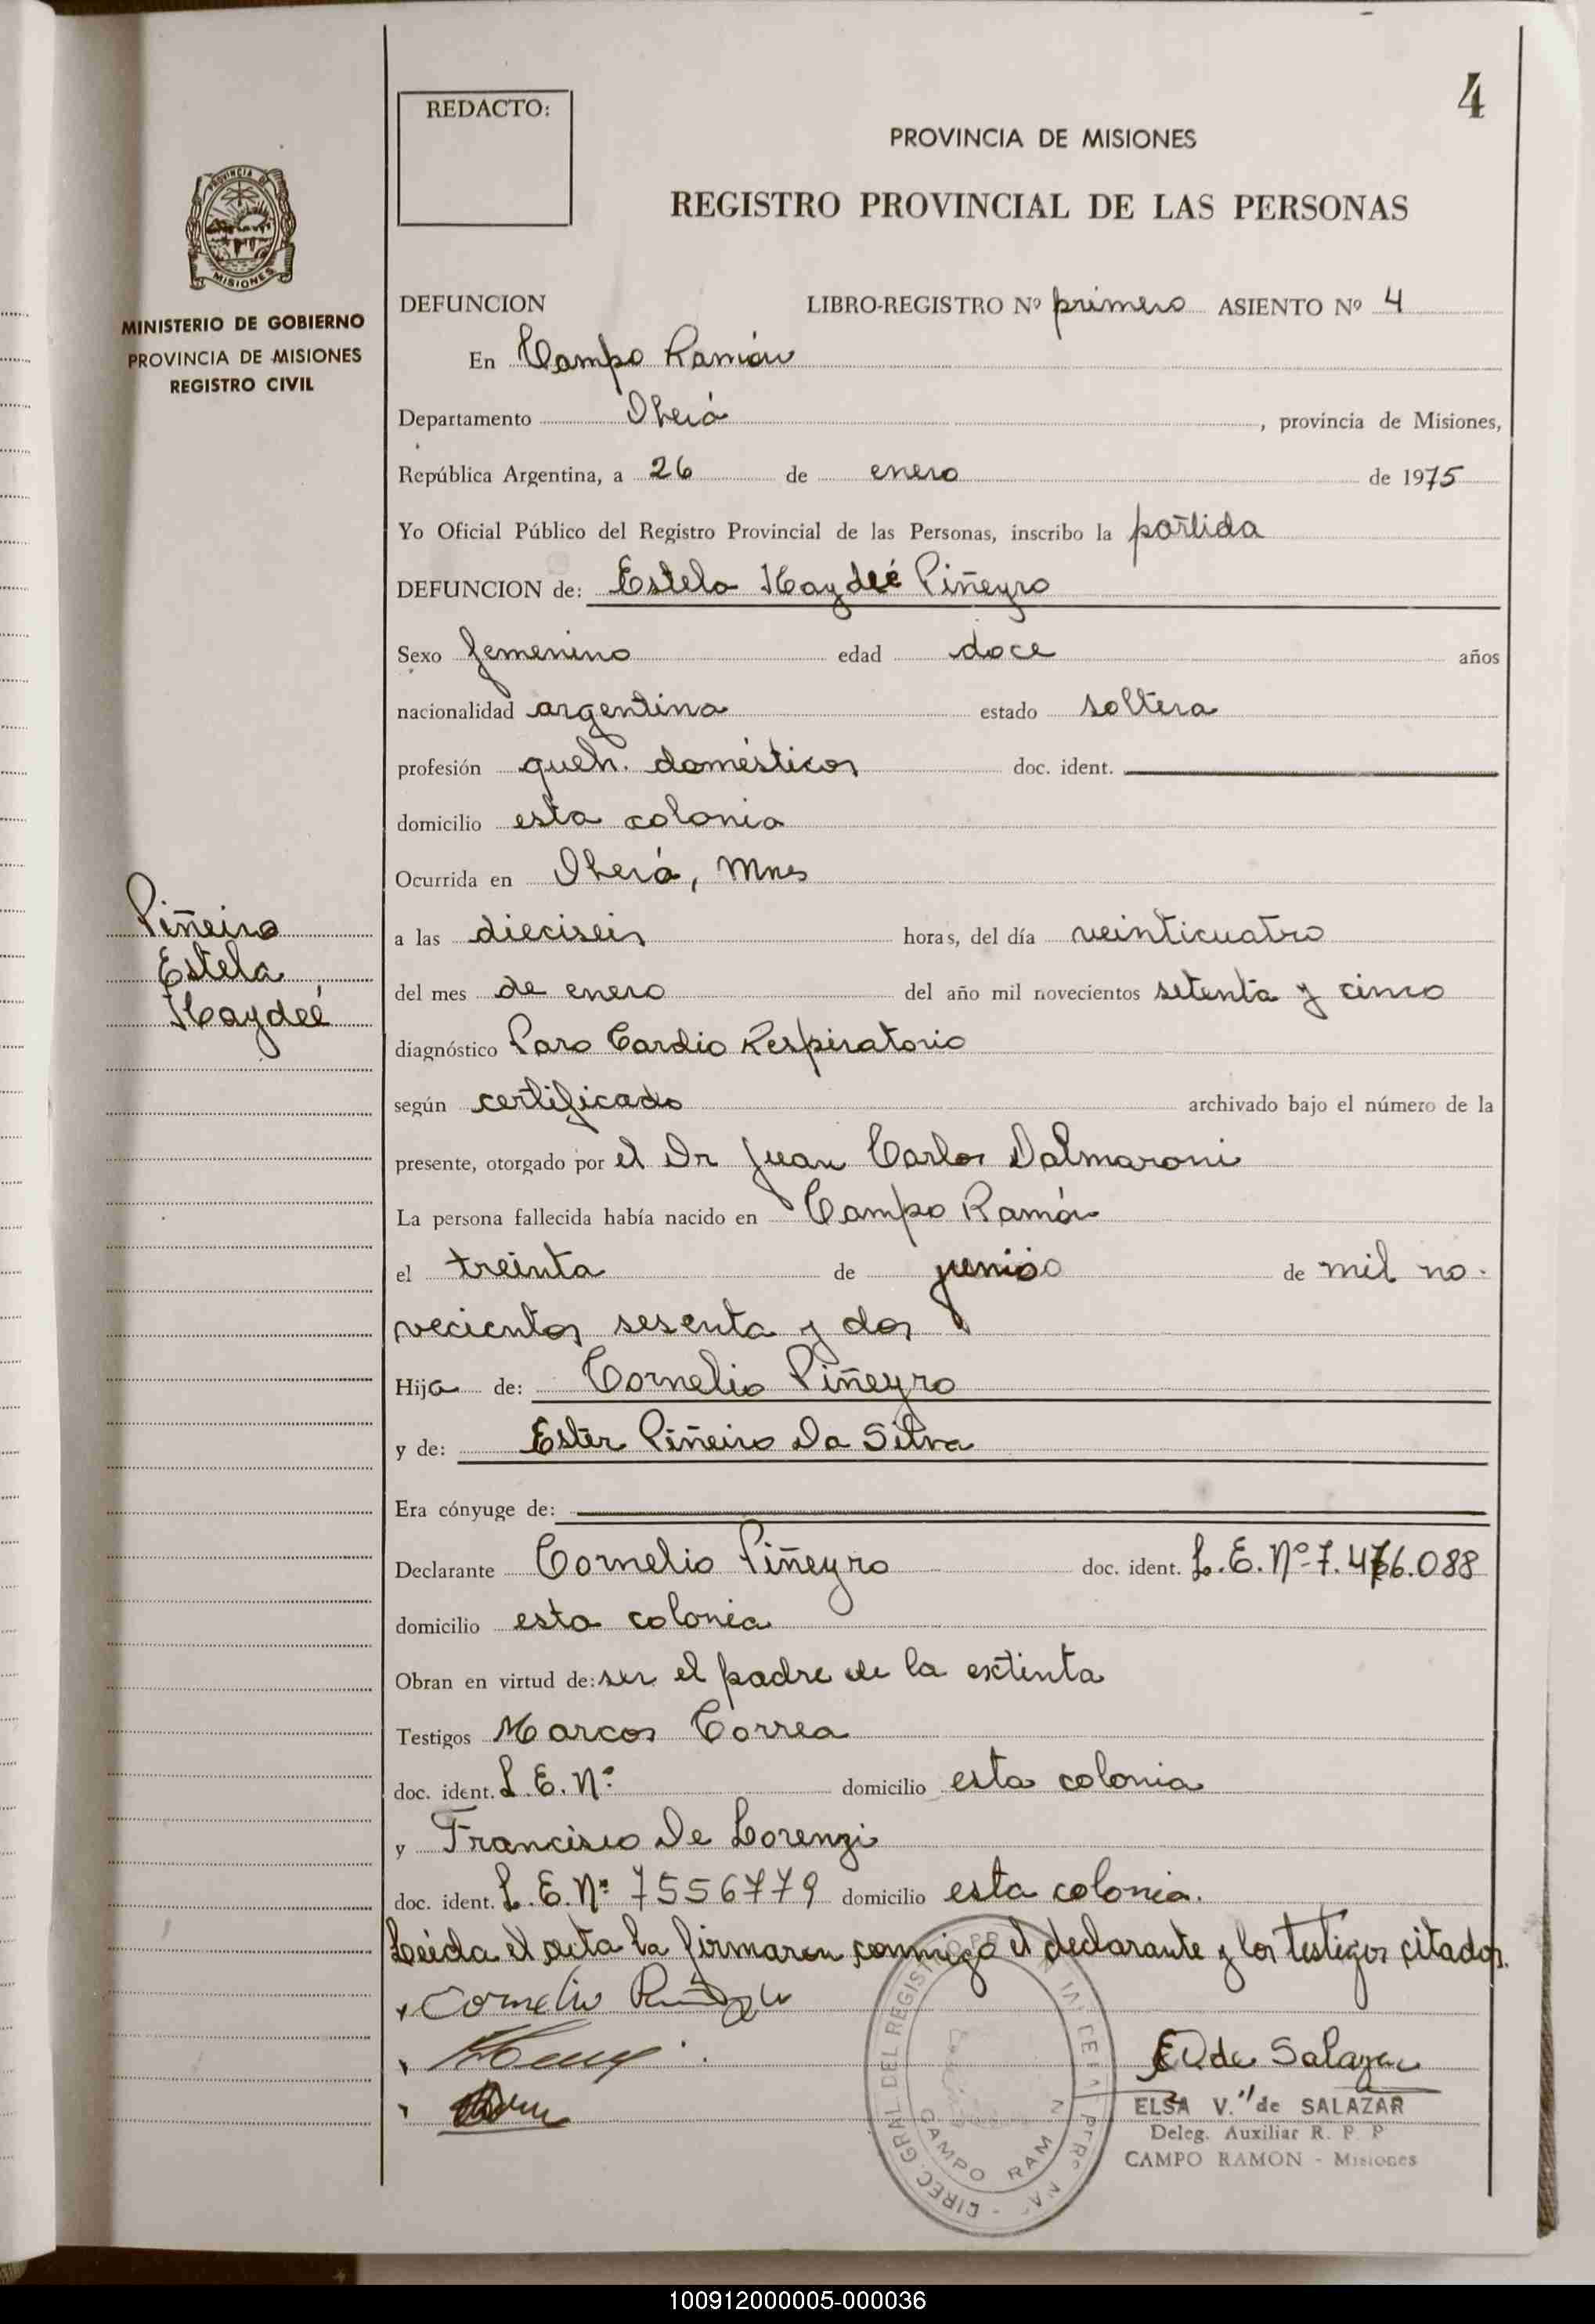 4
REDACTO:
PROVINCIA DE MISIONES
REGISTRO PROVINCIAL DE LAS PERSONAS
PROVINCIA DE
MISIONES
MINISTERIO DE GOBIERNO
PROVINCIA DE MISIONES
REGISTRO CIVIL
DEFUNCION LIBRO-REGISTRO Nº primero ASIENTO Nº 4
En Campo Ramón
Departamento Oberá, provincia de Misiones,
República Argentina, a 26 de enero de 1975
Yo Oficial Público del Registro Provincial de las Personas, inscribo la partida
DEFUNCION de: Estela Haydeé Piñeyro
Sexo femenino edad doce años
nacionalidad argentina estado soltera
profesión queh. domésticos doc. ident.
domicilio esta colonia
Ocurrida en Oberá, Mnes
Piñeiro
Estela
Haydeé
a las dieciseis horas, del día veinticuatro
del mes de enero del año mil novecientos setenta y cinco
diagnóstico Paro Cardio Respiratorio
según certificado archivado bajo el número de la
presente, otorgado por el Dr Juan Carlos Dalmaroni
La persona fallecida había nacido en Campo Ramón
el treinta de junio de mil no-
vecientos sesenta y dos
Hija de: Cornelio Piñeyro
y de: Ester Piñeiro Da Silva
Era cónyuge de:
Declarante Cornelio Piñeyro doc. ident. L.E. Nº 7.466.088
domicilio esta colonia
Obran en virtud de: ser el padre de la extinta
Testigos Marcos Correa
doc. ident. L.E. Nº domicilio esta colonia
y Francisco De Lorenzi
doc. ident. L.E. Nº 7556779 domicilio esta colonia.
Leída el acta la firmaron conmigo el declarante y los testigos citados.
Cornelio
E V de Salazar
ELSA V. de SALAZAR
Deleg. Auxiliar R. P. P
CAMPO RAMON - Misiones
DIREC. GRAL DEL REGISTRO
CAMPO RAM N
100912000005-000036